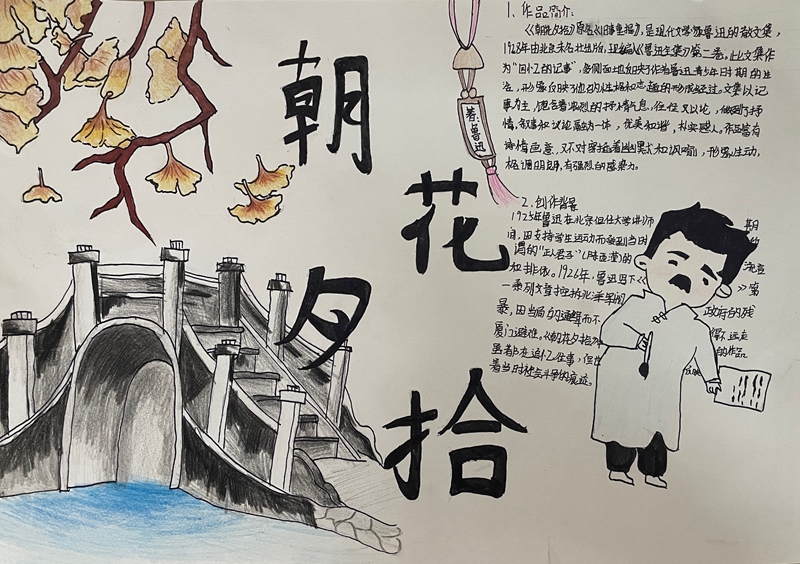 朝
花
夕
拾
著:鲁迅
1、作品简介:
《朝花夕拾》原名《旧事重提》,是现代文学家鲁迅的散文集,
1928年由北京未名社出版,现编入《鲁迅全集》第二卷。此文集作
为“回忆的记事”,多侧面地反映了作者鲁迅青少年时期的生
活,形象反映了他的性格和志趣的形成经过。文集以记
事为主,饱含着浓烈的抒情气息,往往又以论,做到了抒
情、叙事和议论融为一体,优美和谐,朴实感人。作品富有
诗情画意,又不时穿插着幽默和讽喻,形象生动,
格调明朗,有强烈的感染力。
2、创作背景
1925年鲁迅在北京担任大学讲师 期
间,因支持学生运动而受到当时
谓的“正人君子”(陈西滢)的 流言
和排挤。1926年,鲁迅写下《 》
一系列文章 政府的残
暴,因当局的通缉而不 得不远走
厦门避难。《朝花夕拾》 的作品
虽都在追忆往事,但也 反映
着当时社会斗争的痕迹。